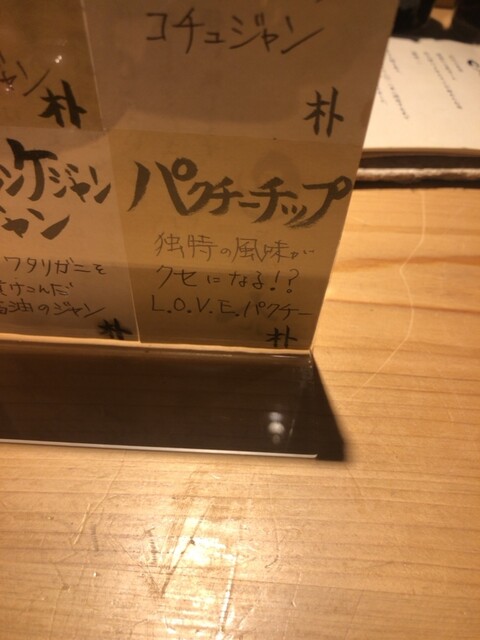 コチュジャン
ジャン
朴
朴
ケジャン
ジャン
ワタリガニを
油のジャン
朴
パクチーチップ
独特の風味が
クセになる!?
L.O.V.E.パクチー
朴